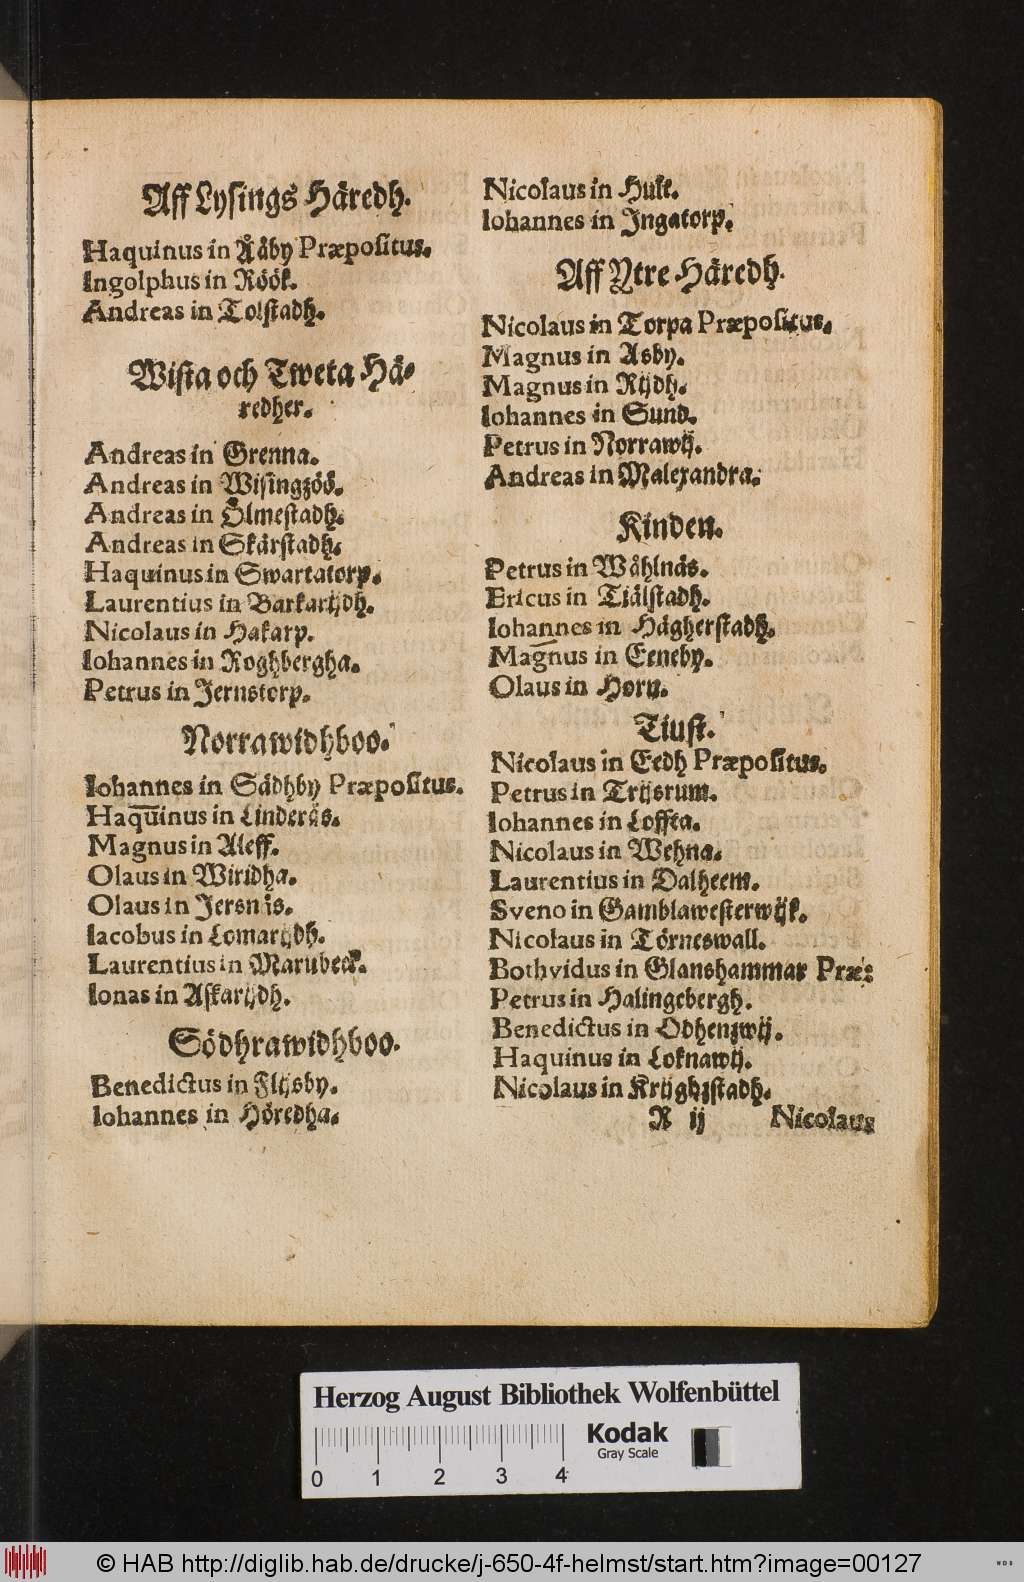 Aff Lysings Häredh.
Haquinus in Ååby Præpositus.
Ingolphus in Röök.
Andreas in Tolstadh.
Wista och Tweta Hä-
redher.
Andreas in Grenna.
Andreas in Wisingzöö.
Andreas in Ölmestadh.
Andreas in Skärstadh.
Haquinus in Swartatorp.
Laurentius in Barkarijdh.
Nicolaus in Hakarp.
Iohannes in Roghbergha.
Petrus in Jernstorp.
Norrawidhboo.
Iohannes in Sädhby Præpositus.
Haquinus in Linderås.
Magnus in Aleff.
Olaus in Wiridha.
Olaus in Jersnäs.
Iacobus in Lomarijdh.
Laurentius in Marubeck.
Ionas in Askarijdh.
Södhrawidhboo.
Benedictus in Flijsby.
Iohannes in Höredha.
Nicolaus in Hult.
Iohannes in Ingatorp.
Aff Ytre Häredh.
Nicolaus in Torpa Præpositus.
Magnus in Asby.
Magnus in Rijdh.
Iohannes in Sund.
Petrus in Norrawij.
Andreas in Malexandra.
Kinden.
Petrus in Wåhlnäs.
Ericus in Tiälstadh.
Iohannes in Hägherstadh.
Magnus in Eeneby.
Olaus in Horn.
Tiust.
Nicolaus in Eedh Præpositus.
Petrus in Trijsrum.
Iohannes in Loffta.
Nicolaus in Wehna.
Laurentius in Dalheem.
Sveno in Gamblawesterwijk.
Nicolaus in Törneswall.
Bothvidus in Glanshammar Præ:
Petrus in Halingebergh.
Benedictus in Odhenzwij.
Haquinus in Loknawij.
Nicolaus in Krijghzstadh.
R ij Nicolaus
Herzog August Bibliothek Wolfenbüttel
Kodak
Gray Scale
0 1 2 3 4
© HAB http://diglib.hab.de/drucke/j-650-4f-helmst/start.htm?image=00127
WDB